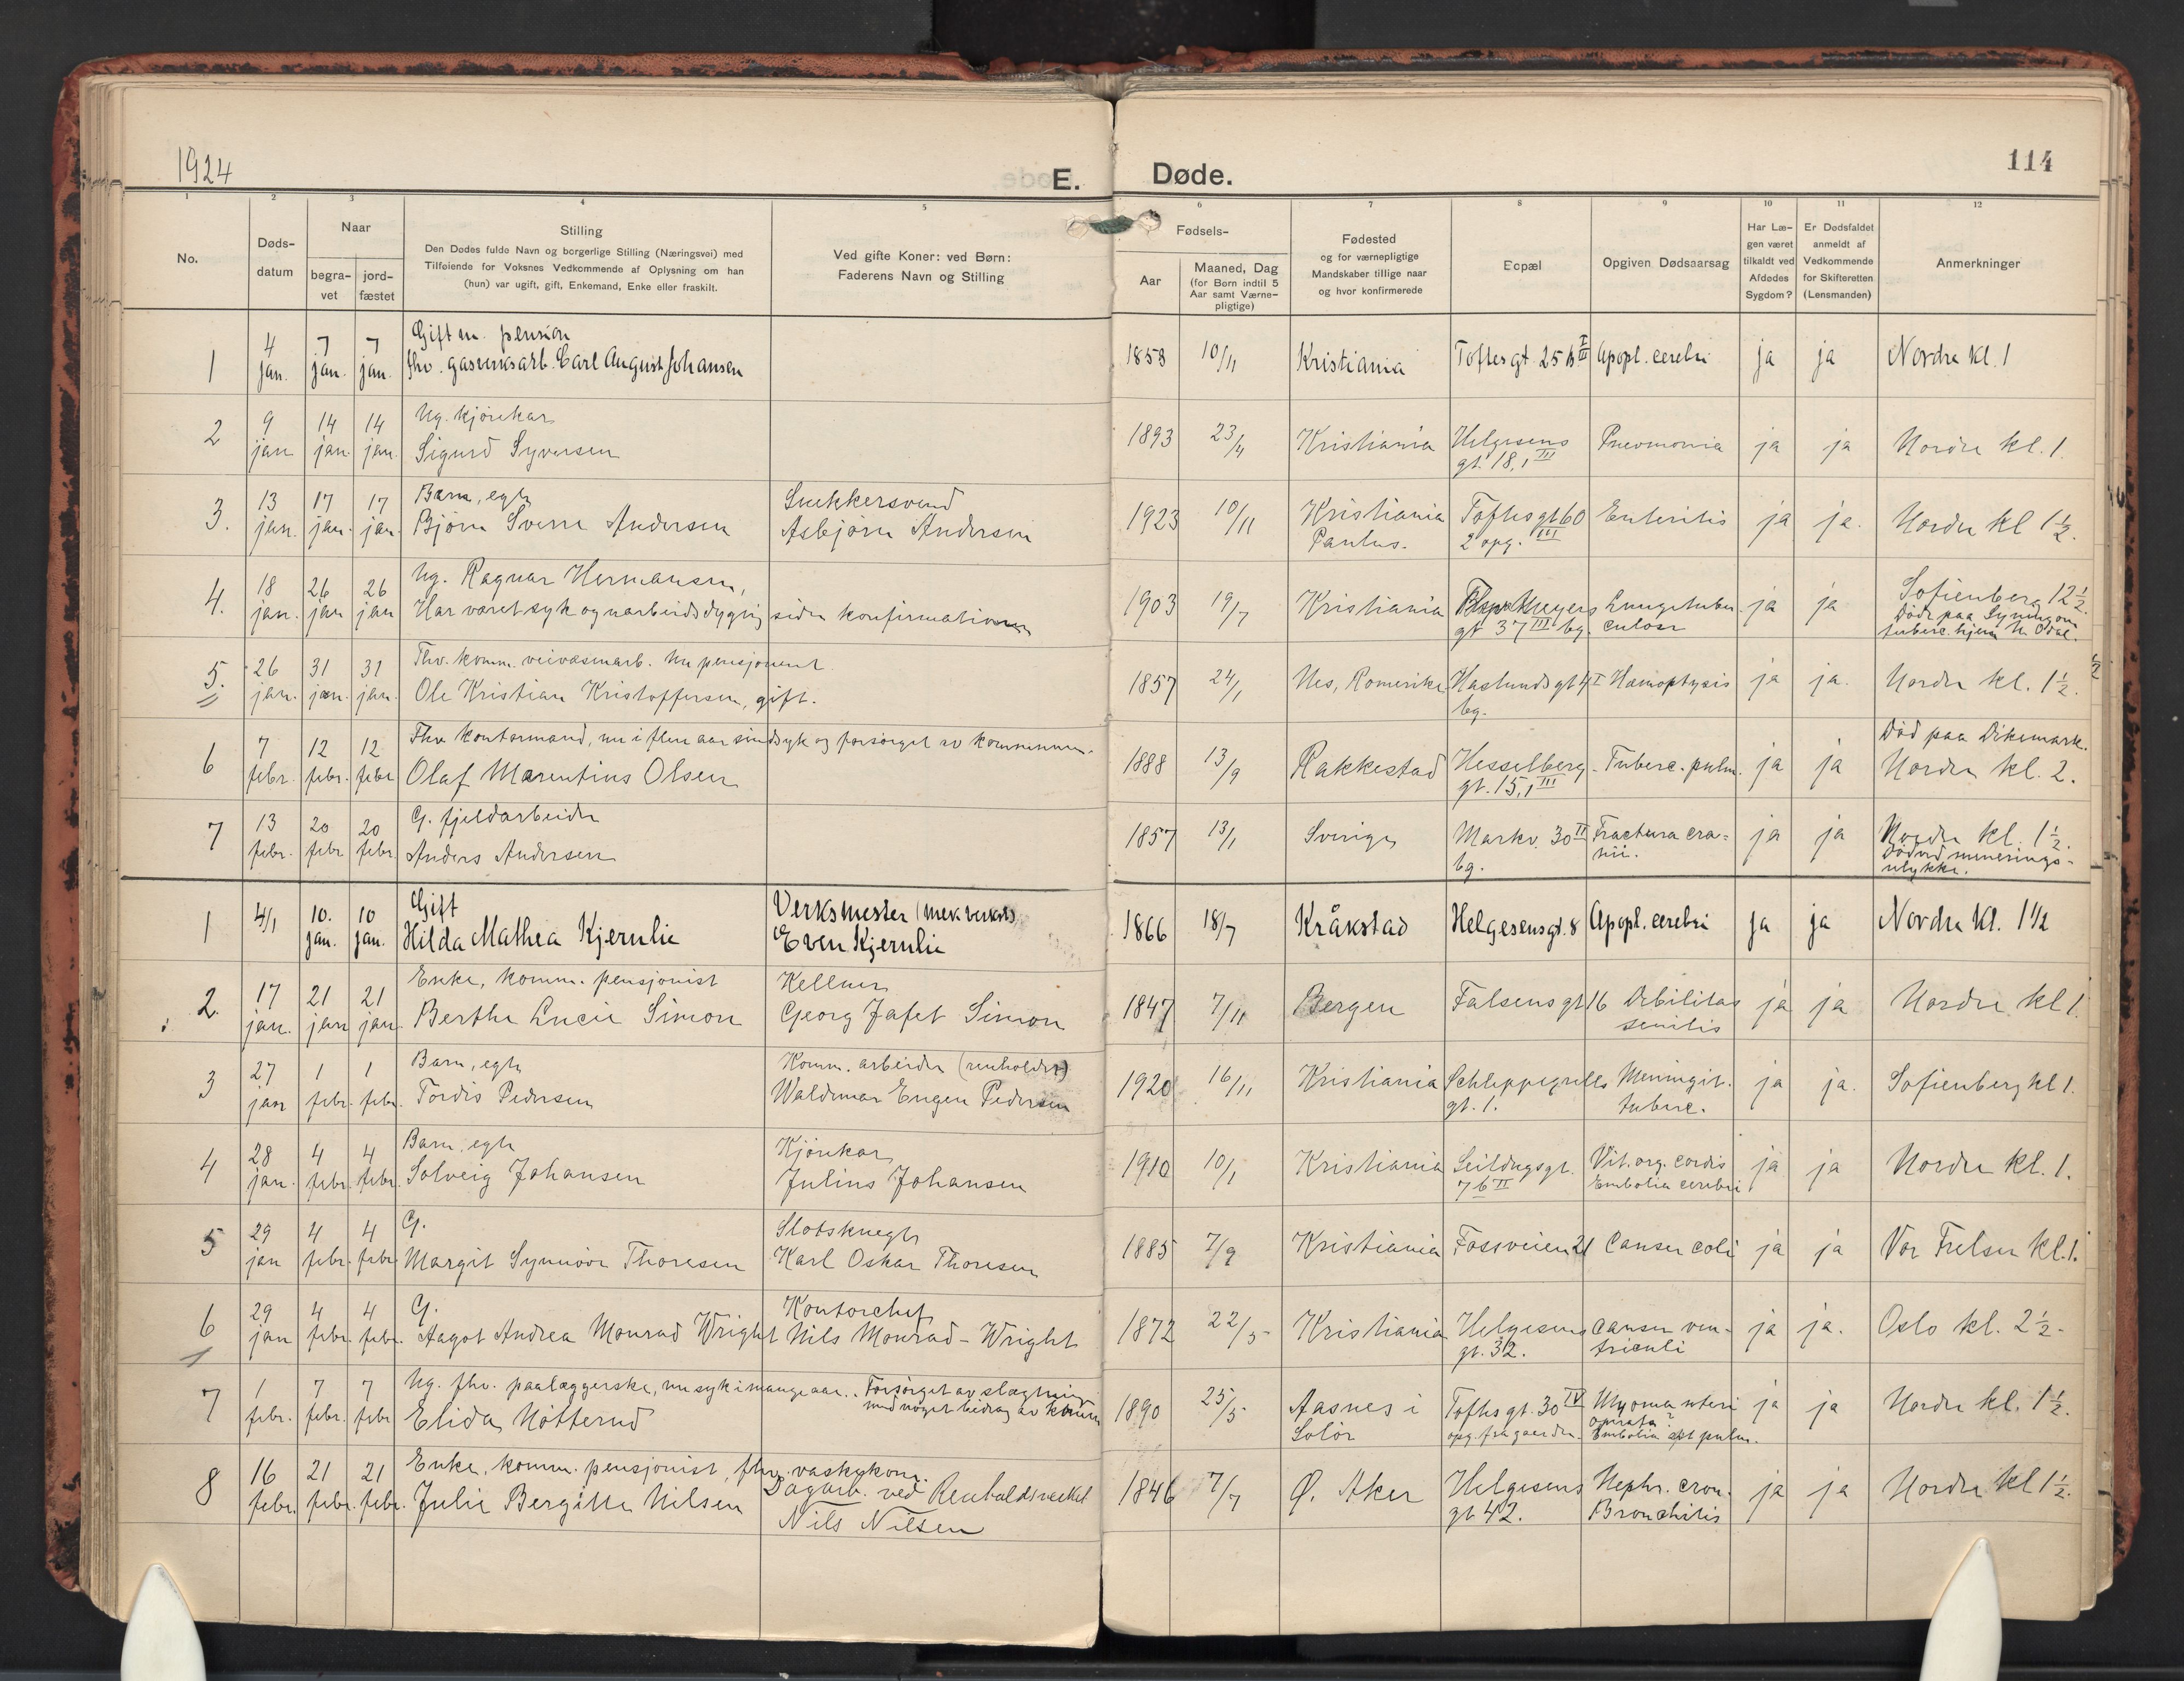 1924
E. Døde.
114
1 2 3 4 5 6 7 8 9 10 11 12
No.
Døds-
datum
Naar
begra-
vet
jord-
fæstet
Stilling
Den Dødes fulde Navn og borgerlige Stilling (Næringsvei) med
Tilføiende for Voksnes Vedkommende af Oplysning om han
(hun) var ugift, gift, Enkemand, Enke eller fraskilt.
Ved gifte Koner: ved Børn:
Faderens Navn og Stilling
Fødsels-
Aar
Maaned, Dag
(for Børn indtil 5
Aar samt Værne-
pligtige)
Fødested
og for værnepligtige
Mandskaber tillige naar
og hvor konfirmerede
Bopæl
Opgiven Dødsaarsag
Har Læ-
gen været
tilkaldt ved
Afdødes
Sygdom?
Er Dødsfaldet
anmeldt af
Vedkommende
for Skifteretten
(Lensmanden)
Anmerkninger
1 4 jan. 7 jan. 7 jan. Gift m. pension
fhv. gasverksarb. Carl August Johansen 1853 10/11 Kristiania Toftesgt. 25 Apopl. cerebri ja ja Nordre kl. 1
2 9 jan 14 jan. 14 jan. Ug. kjørekar
Sigurd Syversen 1893 23/4 Kristiania Helgesens
gt. 18, 1 III Pneumonia ja ja Nordre kl. 1.
3. 13 jan. 17 jan. 17 jan. Barn, egte
Bjørn Sverre Andersen Snekkersvend
Asbjørn Andersen 1923 10/11 Kristiania
Paulus. Toftesgt 60
2 opg. III Enteritis ja ja. Nordre kl 1½.
4. 18 jan. 26 jan 26 jan Ug. Ragnar Hermansen,
Har været syk og uarbeidsdygtig siden konfirmationen 1903 19/7 Kristiania Meyers
gt 37 III bg. Lungetuber-
culose ja ja Sofienberg 12½.
Døde paa
tuberc. hjem N. Odal.
5. 26 jan. 31 jan. 31 jan. Fhv. komm. veivæsenarb. nu pensjonert
Ole Kristian Kristoffersen, gift. 1857 24/1 Nes, Romerike Haslundsgt 4 I
bg. Hæmoptysis ja ja. Nordre kl. 1½.
6 7 febr. 12 febr. 12 febr Fhv kontormand, nu i flere aar sindsyk og forsørget av kommunen.
Olaf Marentius Olsen 1888 13/9 Rakkestad Hesselberg-
gt. 15, 1 III Tuberc. pulm. ja ja Død paa Dikemark.
Nordre kl. 2.
7 13 febr. 20 febr 20 febr. G. fjeldarbeider
Anders Andersen 1857 13/1 Sverige Markv. 30 II
bg. Fractura cra-
nii. ja ja Nordre kl. 1½.
Død ved minerings-
ulykke.
1 4/1 10. jan. 10 jan. Gift
Hilda Mathea Kjernlie Verksmester (mek. verkst.)
Even Kjernlie 1866 18/7 Kråkstad Helgesensgt. 8 Apopl. cerebri ja ja Nordre kl. 1½
2. 17 jan. 21 jan 21 jan. Enke, komm. pensjonist
Berthe Lucie Simon Kellner
Georg Jafet Simon 1847 7/11 Bergen Falsensgt 16 Debilitas
senilis ja ja Nordre kl 1.
3 27 jan 1 febr. 1 febr. Barn, egte
Tordis Pedersen Komm. arbeider (renholdet)
Waldemar Eugen Pedersen 1920 16/11 Kristiania Schleppegrells
gt. 1. Meningit.
tuberc. ja ja. Sofienberg kl 1.
4 28 jan. 4 febr. 4 febr. Barn, egte
Solveig Johansen Kjørekar
Julius Johansen 1910 10/1 Kristiania Seildugsgt.
7 b II Vit. org. cordis
Embolia cerebri ja ja Nordre kl. 1.
5 29 jan 4 febr. 4 febr. G.
Margit Synnøve Thoresen Slotsknegt
Karl Oskar Thoresen 1885 7/9 Kristiania Fossveien 21 Cancer coli ja ja Vor Frelser kl. 1.
6 29 jan 4 febr. 4 febr. G.
Aagot Andrea Monrad Wright Kontorchef
Nils Monrad-Wright 1872 22/5 Kristiania Helgesens
gt. 32. Cancer ven-
triculi ja ja. Oslo kl. 2½-
7 1 febr. 7 febr. 7 febr Ug. fhv. paalæggerske, nu syk i mange aar. Forsørget av slægtninger
med noget bidrag av komm
Elida Nötterud 1890 25/5 Aasnes i
Solør Toftesgt. 30 IV
opg. fra gaarden. Myoma uteri
operata?
Embolia art pulm. ja ja Nordre kl. 1½.
8 16 febr. 21 febr. 21 febr. Enke, komm. pensjonist, fhv. vaskekone.
Julie Bergitte Nilsen Dagarb. ved Renholdsverket
Nils Nilsen 1846 7/7 Ø. Aker Helgesens
gt 42. Nephr. cron.
Bronchitis ja ja Nordre kl 1½.